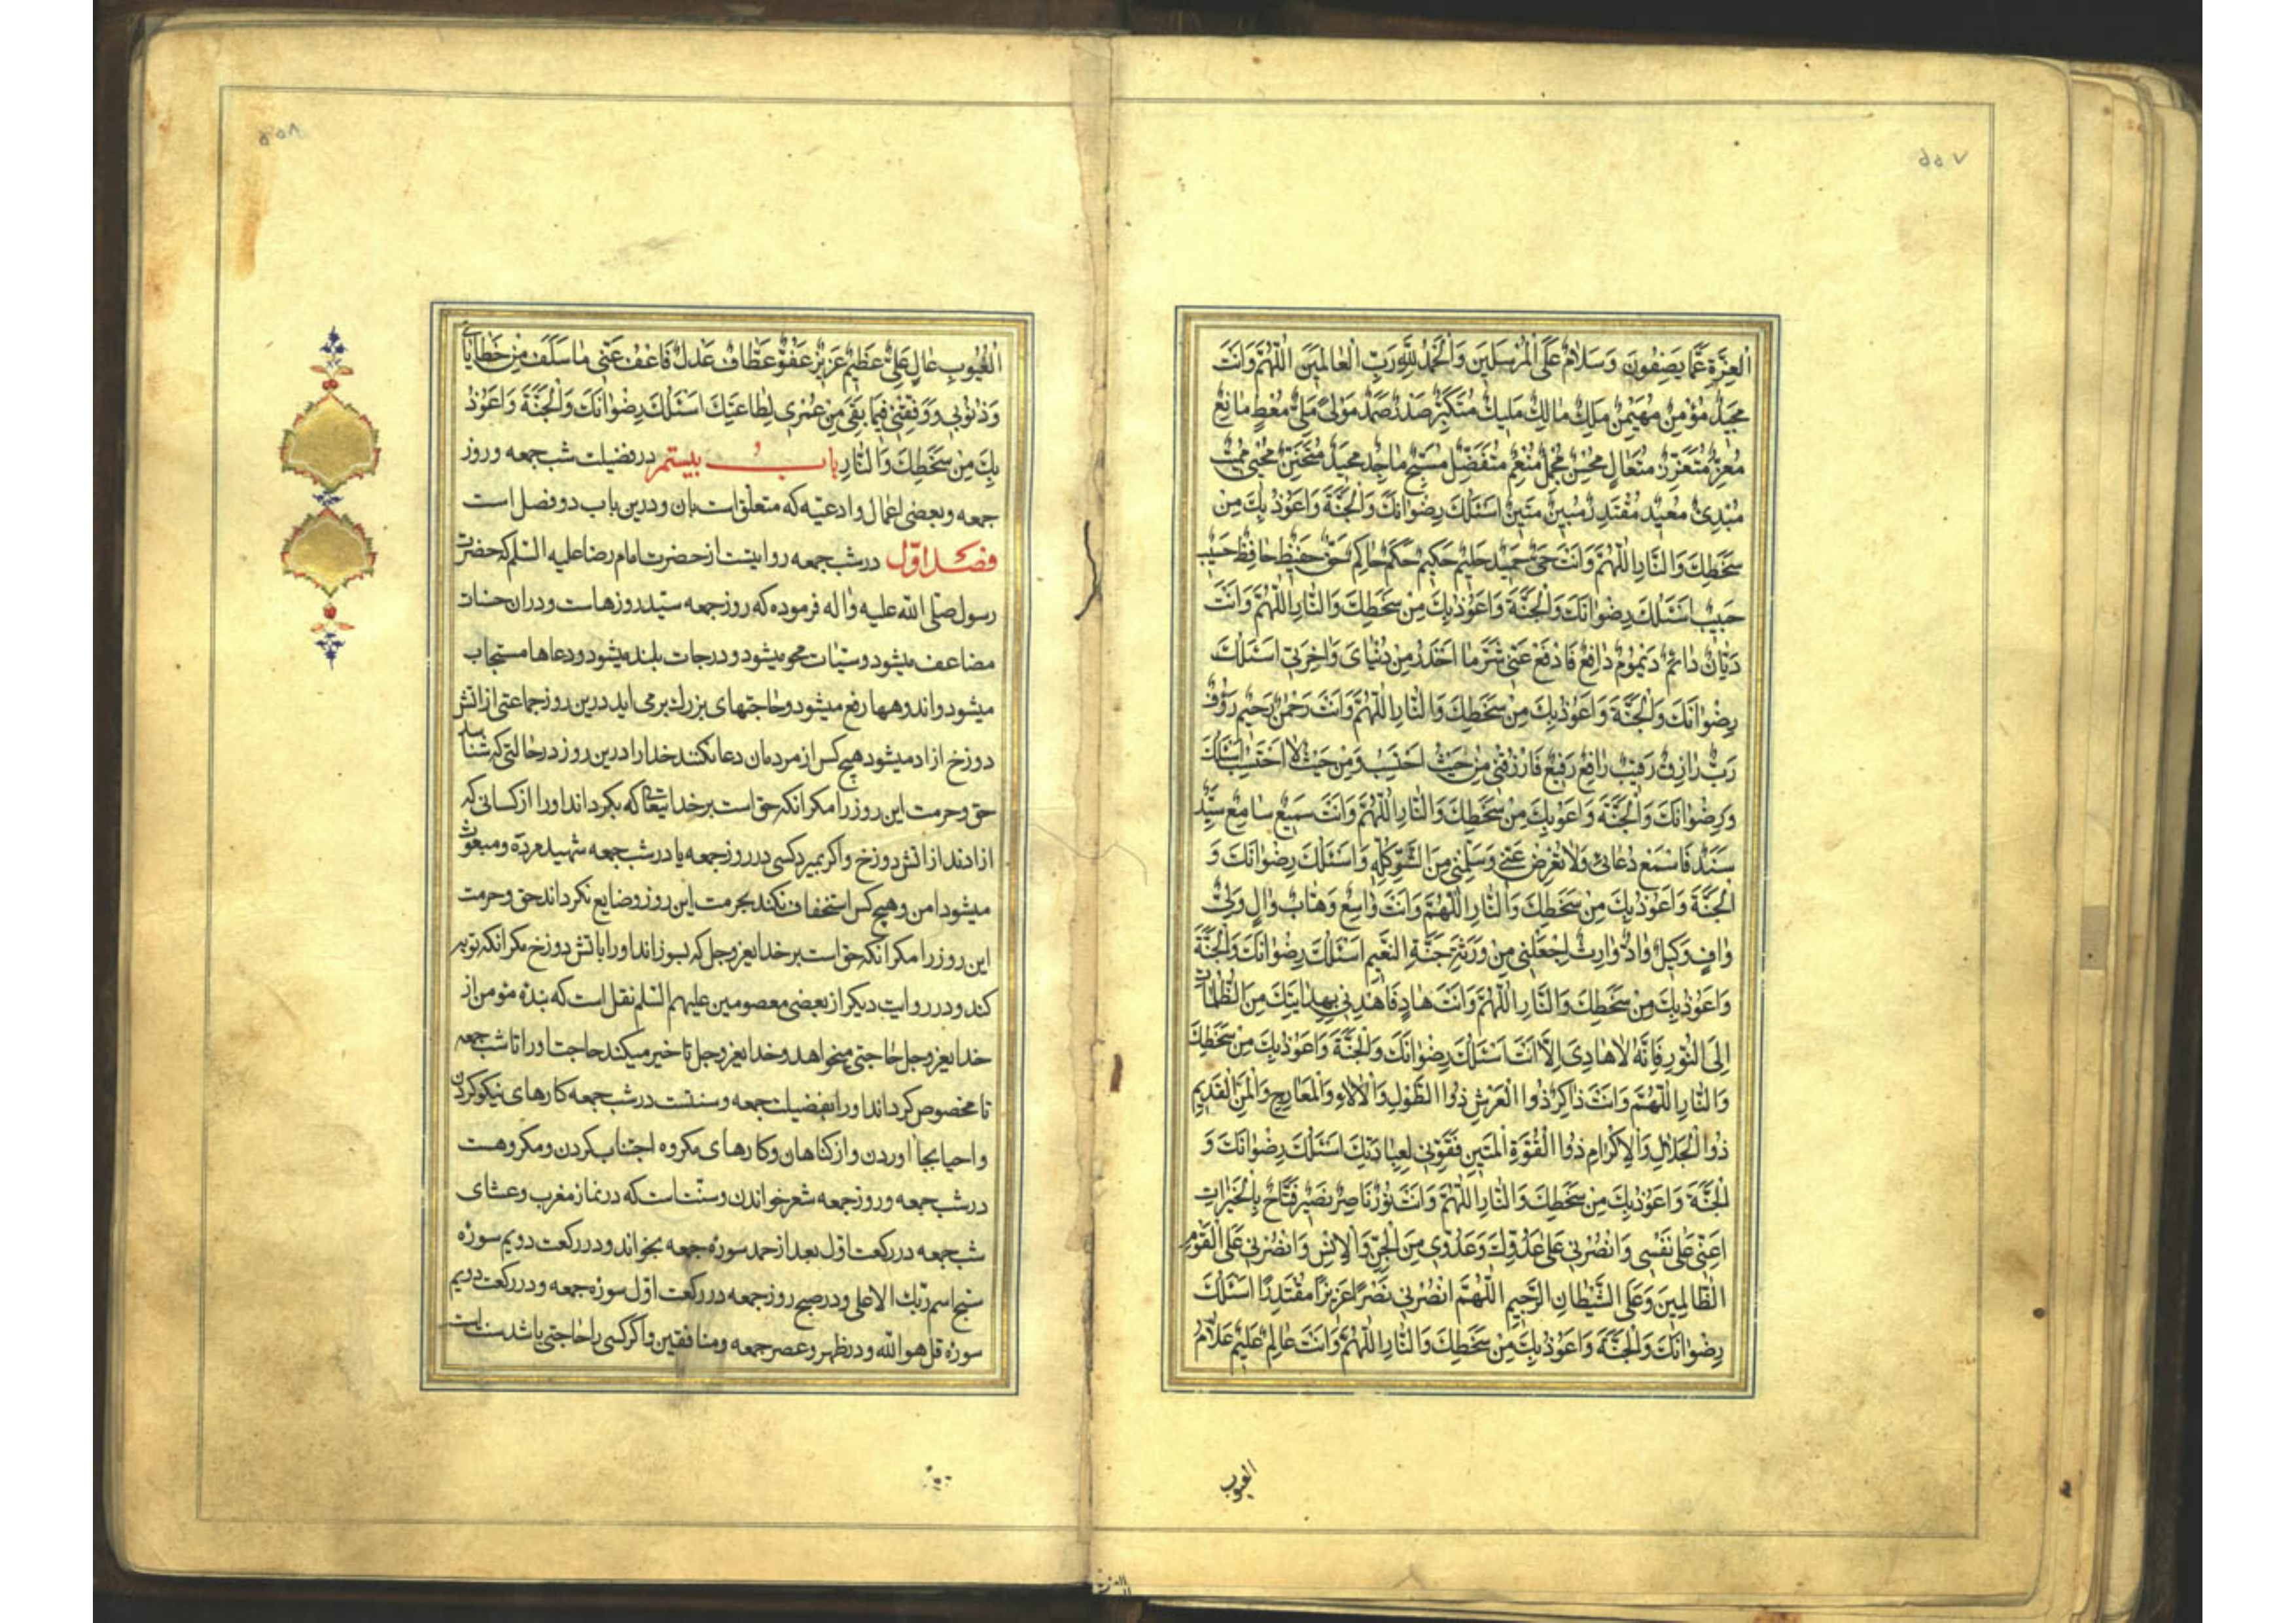 ۵۵۷
الْعِزَّةِ عَمَّا يَصِفُونَ وَسَلَامٌ عَلَى الْمُرْسَلِينَ وَالْحَمْدُ لِلّٰهِ رَبِّ الْعَالَمِينَ اَللّٰهُمَّ وَاَنْتَ
مَجِيدٌ مُؤْمِنٌ مُهَيْمِنٌ مَلِكٌ مَالِكٌ مَلِيكٌ مُتَكَبِّرٌ صَمَدٌ مَوْلىً مَلِيٌّ مُعْطٍ مَانِعٌ
مُعِزٌّ مُتَعَزِّزٌ مُتَعَالٍ مُحْسِنٌ مُجْمِلٌ مُنْعِمٌ مُتَفَضِّلٌ مُسَبَّحٌ مَاجِدٌ مَجِيدٌ مُتَحَنِّنٌ مُحْيِي مُمِيتٌ
مُبْدِئٌ مُعِيدٌ مُقْتَدِرٌ مُبِينٌ مَتِينٌ اَسْئَلُكَ رِضْوَانَكَ وَالْجَنَّةَ وَاَعُوذُ بِكَ مِنْ
سَخَطِكَ وَالنَّارِ اَللّٰهُمَّ وَاَنْتَ حَيٌّ حَمِيدٌ حَلِيمٌ حَكِيمٌ حَكَمٌ حَاكِمٌ حَقٌّ حَفِيظٌ حَافِظٌ حَسِيبٌ
حَبِيبٌ اَسْئَلُكَ رِضْوَانَكَ وَالْجَنَّةَ وَاَعُوذُ بِكَ مِنْ سَخَطِكَ وَالنَّارِ اَللّٰهُمَّ وَاَنْتَ
دَيَّانٌ دَائِمٌ دَيْمُومٌ دَافِعٌ فَادْفَعْ عَنِّي شَرَّ مَا اَحْذَرُ مِنْ دُنْيَايَ وَاٰخِرَتِي اَسْئَلُكَ
رِضْوَانَكَ وَالْجَنَّةَ وَاَعُوذُ بِكَ مِنْ سَخَطِكَ وَالنَّارِ اَللّٰهُمَّ وَاَنْتَ رَحْمٰنٌ رَحِيمٌ رَؤُفٌ
رَبٌّ رَازِقٌ رَقِيبٌ رَافِعٌ رَفِيعٌ فَارْزُقْنِي مِنْ حَيْثُ اَحْتَسِبُ وَمِنْ حَيْثُ لَا اَحْتَسِبُ اَسْئَلُكَ
وَرِضْوَانَكَ وَالْجَنَّةَ وَاَعُوبِكَ مِنْ سَخَطِكَ وَالنَّارِ اَللّٰهُمَّ وَاَنْتَ سَمِيعٌ سَامِعٌ سَيِّدٌ
سَنَدٌ فَاسْمَعْ دُعَائِي وَلَا تُعْرِضْ عَنِّي وَسَلِّمْنِي مِنَ السُّوءِ كُلِّهِ وَاَسْئَلُكَ رِضْوَانَكَ وَ
الْجَنَّةَ وَاَعُوذُ بِكَ مِنْ سَخَطِكَ وَالنَّارِ اَللّٰهُمَّ وَاَنْتَ وَاسِعٌ وَهَّابٌ وَالٍ وَلِيٌّ
وَافٍ وَكِيلٌ وَادٌّ وَارِثٌ اجْعَلْنِي مِنْ وَرَثَةِ جَنَّةِ النَّعِيمِ اَسْئَلُكَ رِضْوَانَكَ وَالْجَنَّةَ
وَاَعُوذُ بِكَ مِنْ سَخَطِكَ وَالنَّارِ اَللّٰهُمَّ وَاَنْتَ هَادٍ فَاهْدِنِي بِهِدَايَتِكَ مِنَ الظُّلُمَاتِ
اِلَى النُّورِ فَاِنَّهُ لَا هَادِيَ اِلَّا اَنْتَ اَسْئَلُكَ رِضْوَانَكَ وَالْجَنَّةَ وَاَعُوذُ بِكَ مِنْ سَخَطِكَ
وَالنَّارِ اَللّٰهُمَّ وَاَنْتَ ذَاكِرٌ ذُوا الْعَرْشِ ذُوا الطَّوْلِ وَالْاٰلَاءِ وَالْمَعَارِجِ وَالْمَنِّ الْقَدِيمِ
ذُوا الْجَلَالِ وَالْاِكْرَامِ ذُوا الْقُوَّةِ الْمَتِينِ فَقَوِّنِي لِعِبَادَتِكَ اَسْئَلُكَ رِضْوَانَكَ وَ
الْجَنَّةَ وَاَعُوذُ بِكَ مِنْ سَخَطِكَ وَالنَّارِ اَللّٰهُمَّ وَاَنْتَ نُورٌ نَاصِرٌ نَصِيرٌ فَتَّاحٌ بِالْخَيْرَاتِ
اَعِنِّي عَلَى نَفْسِي وَانْصُرْنِي عَلَى عَدُوِّكَ وَعَدُوِّي مِنَ الْجِنِّ وَالْاِنْسِ وَانْصُرْنِي عَلَى الْقَوْمِ
الظَّالِمِينَ وَعَلَى الشَّيْطَانِ الرَّجِيمِ اَللّٰهُمَّ انْصُرْنِي نَصْرًا عَزِيزًا مُقْتَدِرًا اَسْئَلُكَ
رِضْوَانَكَ وَالْجَنَّةَ وَاَعُوذُ بِكَ مِنْ سَخَطِكَ وَالنَّارِ اَللّٰهُمَّ وَاَنْتَ عَالِمٌ عَلِيمٌ عَلَّامُ
الغیوب
۵۵۸
الْغُيُوبِ عَالٍ عَلِيٌّ عَظِيمٌ عَزِيزٌ عَفُوٌّ عَطَّافٌ عَدْلٌ فَاعْفُ عَنِّي مَا سَلَفَ مِنْ خَطَايَايَ
وَذُنُوبِي وَوَفِّقْنِي فِيمَا بَقِيَ مِنْ عُمْرِي لِطَاعَتِكَ اَسْئَلُكَ رِضْوَانَكَ وَالْجَنَّةَ وَاَعُوذُ
بِكَ مِنْ سَخَطِكَ وَالنَّارِ باب بیستم در فضیلت شب جمعه و روز
جمعه وبعضی اعمال وادعیّه که متعلق است بان ودرین باب دو فصل است
فصل اوّل در شب جمعه روایتست از حضرت امام رضا علیه السّلم که حضرت
رسول صلّی اللّه علیه واله فرموده که روز جمعه سیّد روزهاست ودران حسنات
مضاعف میشود وسیّات محو میشود ودرجات بلند میشود ودعاها مستجاب
میشود واندوهها رفع میشود وحاجتهای بزرك برمی اید درین روز جماعتی از اتش
دوزخ ازاد میشود هیچ کس از مردمان دعا نکنند خدا را درین روز در حالتی که شناسد
حق وحرمت این روز را مکر انکه حق است بر خدایتعالی که بکرداند او را از کسانی که
ازادند از اتش دوزخ واکر بمیرد کسی در روز جمعه یا در شب جمعه شهید مرده ومبعوث
میشود امن وهیچ کس استخفاف نکند بحرمت این روز وضایع نکرداند حق وحرمت
این روز را مکر انکه حق است بر خدایعزوجل که بسوزاند او را باتش دوزخ مکر انکه توبه
کند ودر روایت دیکر از بعضی معصومین علیهم السّلم نقل است که بنده مومن از
خدایعزوجل حاجتی میخواهد وخدایعزوجل تاخیر میکند حاجت او را تا شب جمعه
تا مخصوص کرداند او را بفضیلت جمعه وسنتست در شب جمعه کارهای نیکو کردن
واحیا بجا اوردن واز کناهان وکارهای مکروه اجتناب کردن ومکروهست
در شب جمعه وروز جمعه شعر خواندن وسنّتست که در نماز مغرب وعشای
شب جمعه در رکعت اوّل بعد از حمد سورهٔ جمعه بخواند ودر رکعت دویم سورهٔ
سبح اسم ربّك الاعلی ودر صبح روز جمعه در رکعت اوّل سورهٔ جمعه ودر رکعت دویم
سورهٔ قل هو اللّه ودر ظهر وعصر جمعه ومنافقین واکر کسی را حاجتی باشد